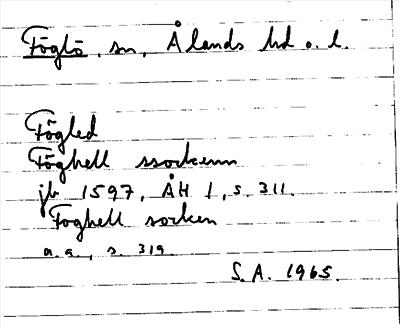 Föglö, sn, Ålands hd o. l.
Fögled
Föghell ssockenn
jb 1597, ÅH 1, s. 311.
Foghell socken
a.a., s. 319.
S.A. 1965.